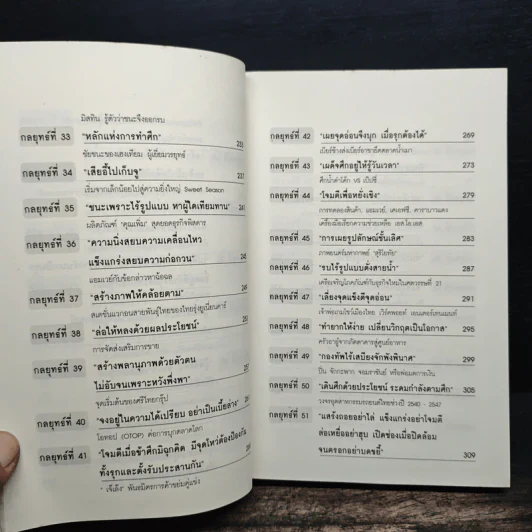 มิสทิน รู้ตัวว่าชนะจึงออกรบ
กลยุทธ์ที่ 33 "หลักแห่งการทำศึก" 233
ชัยชนะของเฮงเทียม ผู้เยี่ยมวรยุทธ์
กลยุทธ์ที่ 34 "เสียอี้ไปเก็บจู" 237
เริ่มจากเล็กน้อยไปสู่ความยิ่งใหญ่ Sweet Season
กลยุทธ์ที่ 35 "ชนะเพราะไร้รูปแบบ หาผู้ใดเทียมทาน" 241
ผลิตภัณฑ์ "คุณแพ้ม" สุดยอดธุรกิจพัสดาร
กลยุทธ์ที่ 36 "ความนิ่งสยบความเคลื่อนไหว
แข็งแกร่งสยบความก่อกวน" 245
แอมเวย์กับข้อกล่าวหาฉ้อฉล
กลยุทธ์ที่ 37 "สร้างภาพให้คล้อยตาม" 249
สเตชั่นแวกอนสายพันธุ์ไทยของไทยรุ่งยูเนี่ยนคาร์
กลยุทธ์ที่ 38 "ล่อให้หลงด้วยผลประโยชน์"
การจัดส่งเสริมการขาย
กลยุทธ์ที่ 39 "สร้างพลานุภาพด้วยตัวตน
ไม่อับจนเพราะหวังพึ่งพา"
จุดเริ่มต้นของศรีไทยกรุ๊ป
กลยุทธ์ที่ 40 "จงอยู่ในความได้เปรียบ อย่าเป็นเบี้ยล่าง"
โอทอป (OTOP) ต่อการบุกตลาดโลก
กลยุทธ์ที่ 41 "โจมตีเมื่อข้าศึกมิฉุกคิด มีจุดไหวต้องป้องกัน
ทั้งรุกและตั้งรับประสานกัน"
"เจ๊เล้ง" พันธมิตรการค้าข่มคู่แข่ง
กลยุทธ์ที่ 42 "เผยจุดอ่อนจึงบุก เมื่อรุกต้องได้" 269
เบียร์ช้างส่งเบียร์อาชายึดตลาดน้ำเมา
กลยุทธ์ที่ 43 "เผด็จศึกอยู่ที่รู้วันเวลา" 273
ศึกน้ำดำโค้ก VS เป๊ปซี่
กลยุทธ์ที่ 44 "โจมตีเพื่อหยั่งเชิง" 279
การทดลองสินค้า, แอมเวย์, เคเอฟซี, คาราบาวแดง
เครื่องมือเรียกความช่วยเหลือ เอส.โอ.เอส
กลยุทธ์ที่ 45 "การเผยรูปลักษณ์ชั้นเลิศ" 283
ภาพยนตร์มหากาพย์ "สุริโยทัย"
กลยุทธ์ที่ 46 "รบไร้รูปแบบดั่งสายน้ำ" 287
เตรียมเจริญโภคภัณฑ์กับธุรกิจใหม่ในศตวรรษที่ 21
กลยุทธ์ที่ 47 "เลี่ยงจุดแข็งตีจุดอ่อน" 291
เจ้าพ่อเกมโชว์เมืองไทย เวิร์คพอยท์ เอนเตอร์เทนเมนท์
กลยุทธ์ที่ 48 "ทำยากให้ง่าย เปลี่ยนวิกฤตเป็นโอกาส" 295
ครัวอาจู จากภัตตาคารสู่ศูนย์อาหาร
กลยุทธ์ที่ 49 "กองทัพไร้เสบียงจักพังพินาศ" 299
ปิ่น จักกะพาก จอมราชันย์ หรือพ่อมดการเงิน
กลยุทธ์ที่ 50 "เดินศึกด้วยประโยชน์ ระดมกำลังตามศึก" 305
วงจรอุตสาหกรรมรถยนต์ไทยช่วงปี 2540 - 2547
กลยุทธ์ที่ 51 "แสร้งถอยอย่าไล่ แข็งแกร่งอย่าโจมตี
ล่อเหยื่ออย่าฮุบ เปิดช่องเมื่อปิดล้อม
จนตรอกอย่าบดขยี้" 309